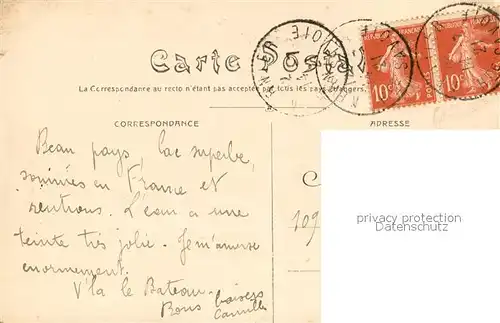 Carte Postale
La Correspondance au recto n'étant pas acceptée par tous les pays étrangers
CORRESPONDANCE
ADRESSE
10c 10c
Beau pays, lac superbe,
sommes en France et
rentrons. L'eau a une
teinte très jolie. Je m'amuse
enormement.
V'la le Bateau.
Bons baisers
Camille
109
privacy protection
Datenschutz